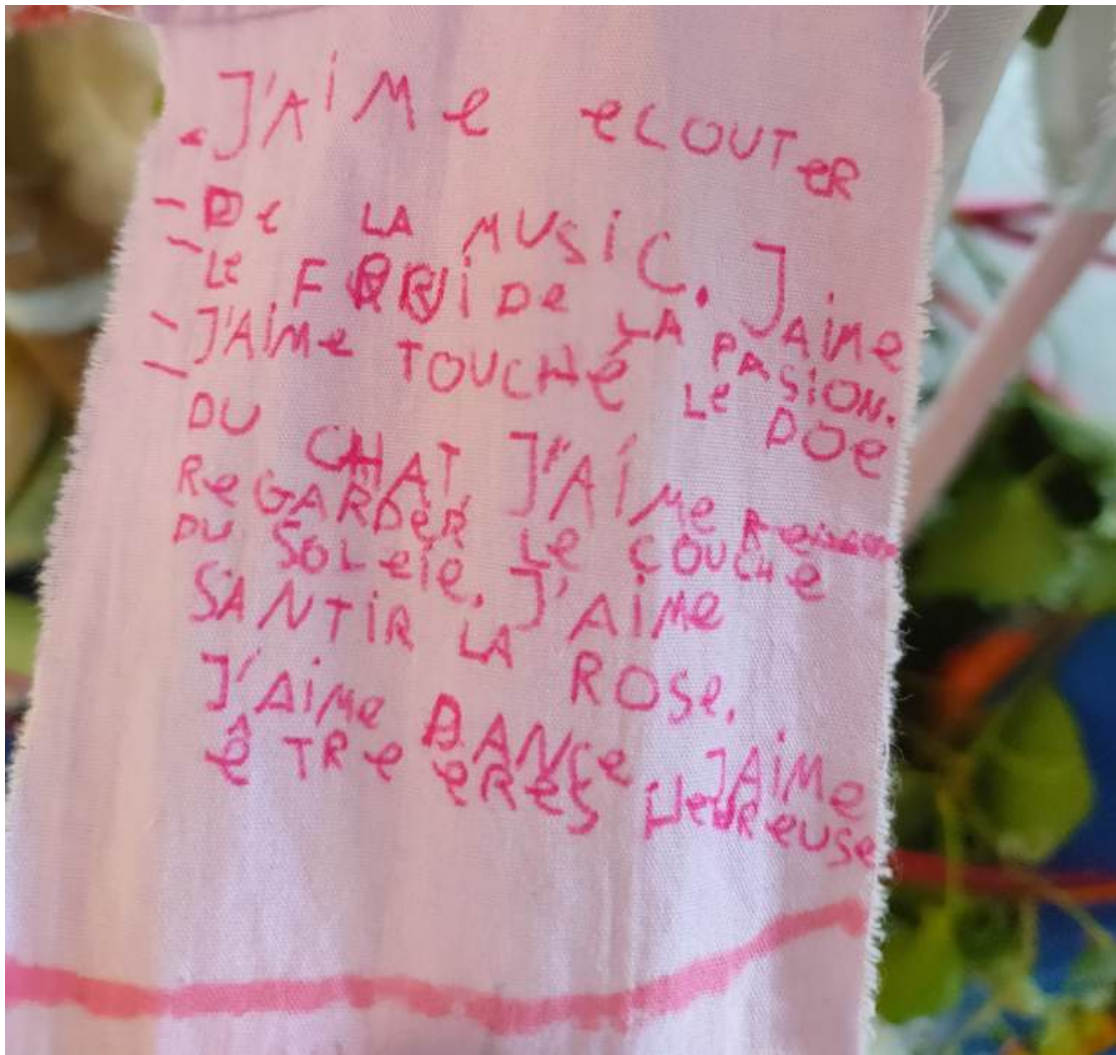 J'AiMe eCOUTeR
De LA MUSiC. JAiMe
Le FRUi De LA PASiON.
J'AiMe TOUCHé Le DOE
DU CHAT, J'AiMe
ReGARDeR Le COUCHe
DU SOLeie. J'AiMe
SANTiR LA ROSe.
J'AiMe DANCe JAiMe
êTRe eRes HeUReUSe